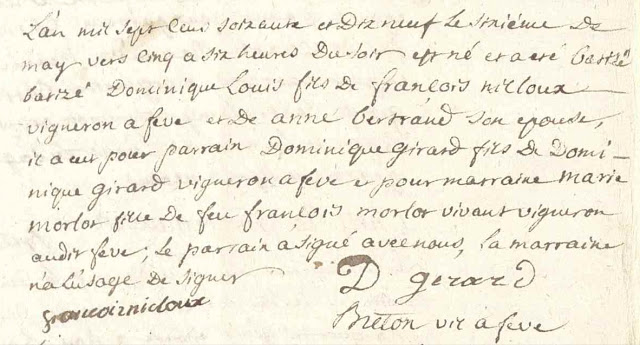 L'an mil sept cens soixante et Dix neuf Le sixiéme De
may vers cinq a six heures Du soir est né et a eté batizé
batizé Dominique Louis fils de françois nicloux
vigneron a feve et De anne bertrand son epouse,
il a eut pour parrain Dominique girard fils de Domi-
nique girard vigneron a feve et pour marraine marie
morlot fille de feu françois morlot vivant vigneron
audit feve; Le parrain a signé avec nous, la marraine
n'a l'usage De signer
D gerard
francoiznicloux
Breton vic a feve